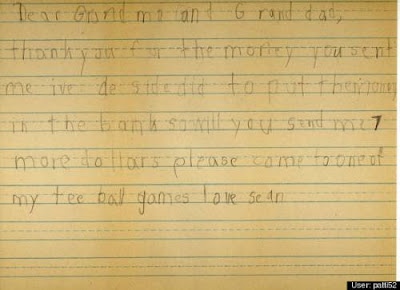 Dear Grand ma and Grand dad,
thank you for the money you sent
me ive de side did to put the mony
in the bank so will you send me 7
more dollars please come to one of
my tee ball games love sean
User: patti52